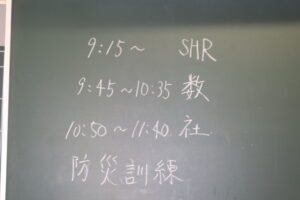 9:15~ SHR
9:45~10:35 数
10:50~11:40 社
防災訓練